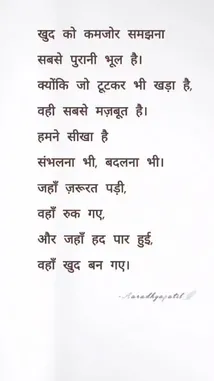 खुद को कमजोर समझना
सबसे पुरानी भूल है।
क्योंकि जो टूटकर भी खड़ा है,
वही सबसे मज़बूत है।
हमने सीखा है
संभलना भी, बदलना भी।
जहाँ ज़रूरत पड़ी,
वहाँ रुक गए,
और जहाँ हद पार हुई,
वहाँ खुद बन गए।
-Aaradhyapatil